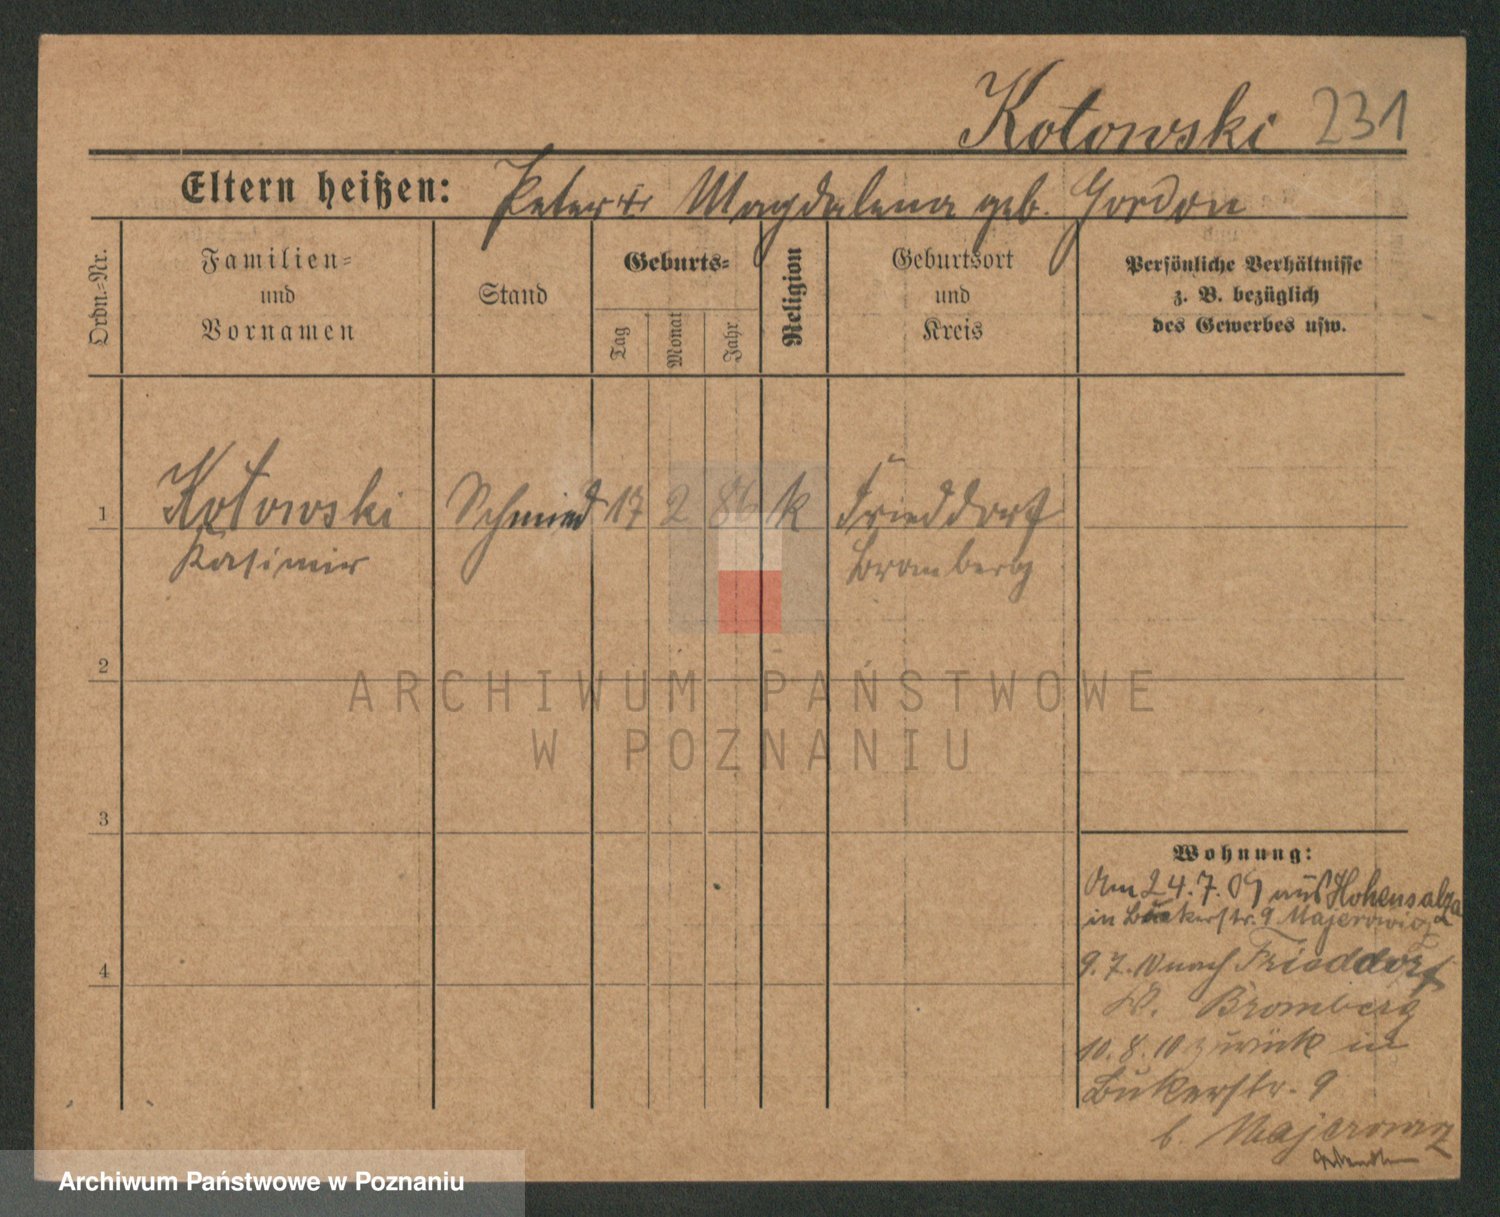 Kotowski 231
Eltern heißen: Peter + Magdalena geb. Gordon
Ordn.-Nr.
Familien-
und
Vornamen
Stand
Geburts-
Tag
Monat
Jahr
Religion
Geburtsort
und
Kreis
Persönliche Verhältnisse
z. B. bezüglich
des Gewerbes usw.
1 Kotowski Schmied 17 2 86 k Frieddorf
Kasimir Bromberg
2
3
4
Wohnung:
Am 24.7.09 aus Hohensalza
in Bukerstr. 9 Majerowicz
9.7.10 nach Frieddorf
Bromberg
10.8.10 zurück in
Bukerstr. 9
b. Majerowicz
ARCHIWUM PAŃSTWOWE
W POZNANIU
Archiwum Państwowe w Poznaniu